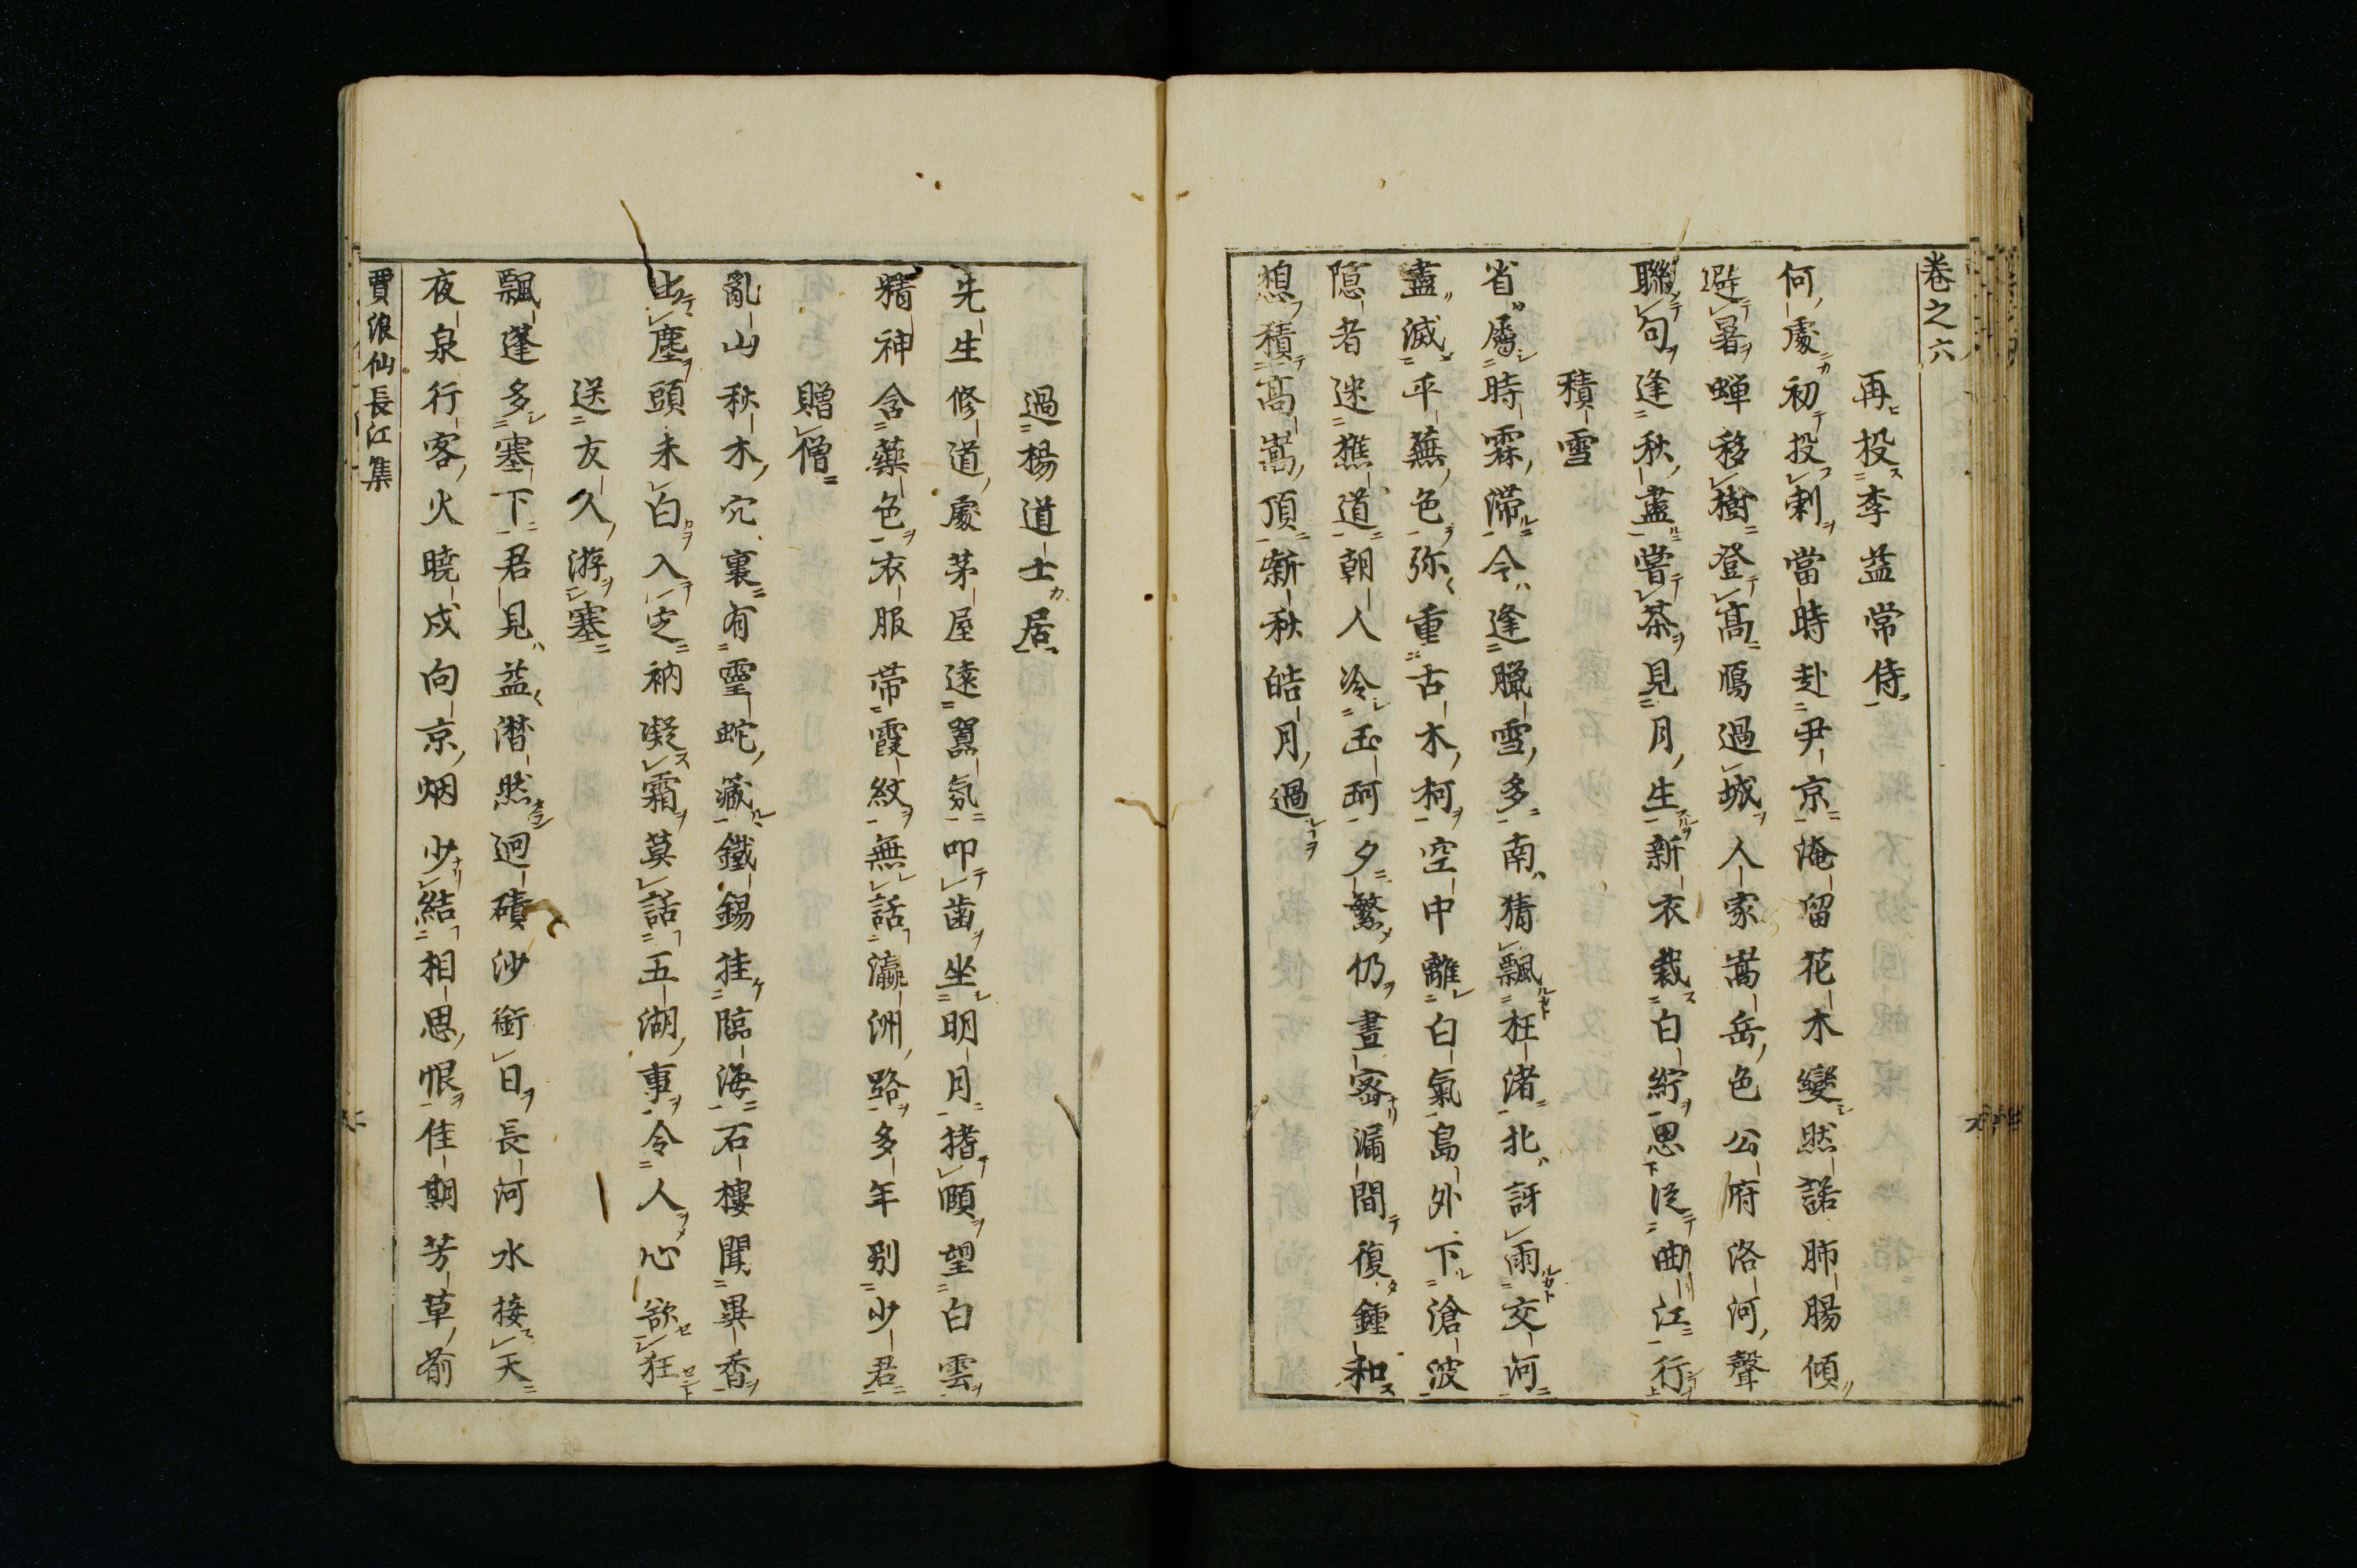 卷之六
再投李益常侍
何處初投刺當時赴尹京淹留花木變然諾肺腸傾
避暑蝉移樹登髙鴈過城人家嵩岳色公府洛河聲
聯句逢秋盡嘗茶見月生新衣裁白紵思從曲江行
積雪
省屬時霖滯今逢臘雪多南猜飄枉渚北訝雨交河
盡滅平蕪色弥重古木柯空中離白氣島外下滄波
隱者迷樵道朝人冷玉珂夕繁仍晝密漏間復鍾和
想積髙嵩頂新秋皓月過
過楊道士居
先生修道處茅屋遠囂氛叩齒坐明月搘頤望白雲
精神含藥色衣服帶霞紋無話瀛洲路多年别少君
贈僧
亂山秋木穴裏有靈蛇藏鐵錫挂臨海石樓聞異香
出塵頭未白入定衲凝霜莫話五湖事令人心欲狂
送友人游塞
飄蓬多塞下君見益潸然迥磧沙銜日長河水接天
夜泉行客火曉戍向京烟少結相思恨佳期芳草前
賈浪仙長江集